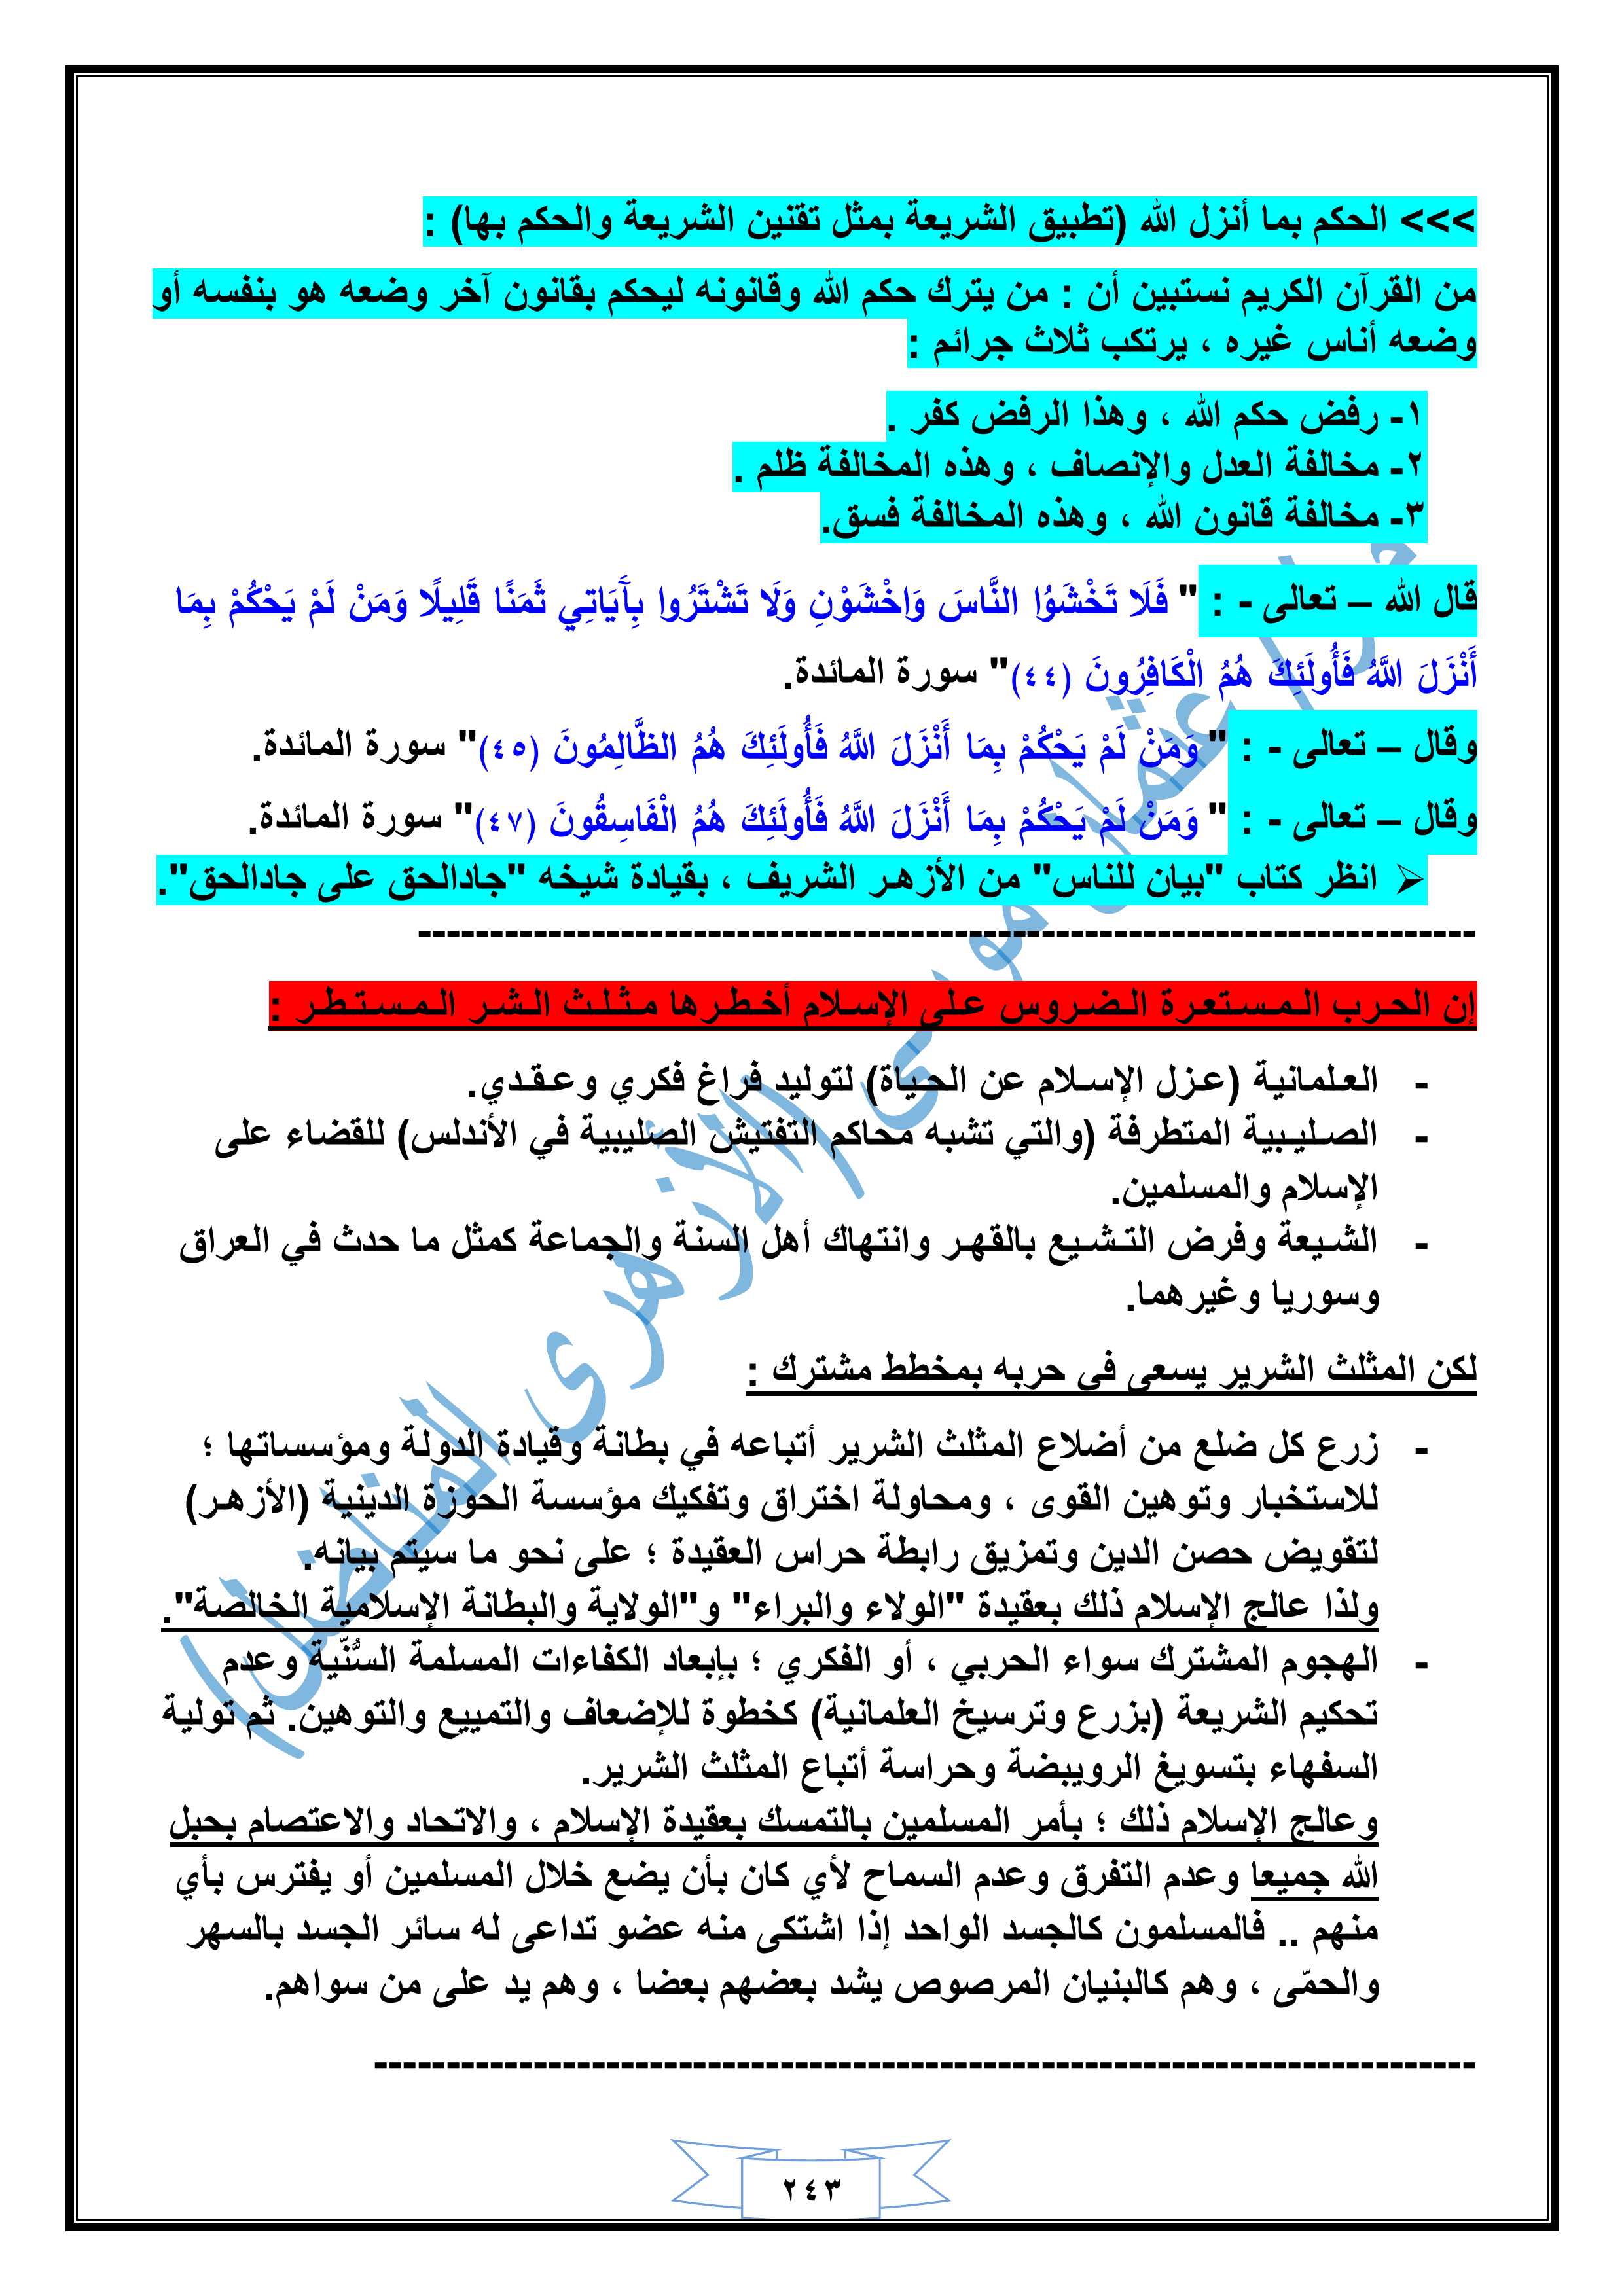 >>> الحكم بما أنزل الله (تطبيق الشريعة بمثل تقنين الشريعة والحكم بها) :
من القرآن الكريم نستبين أن : من يترك حكم الله وقانونه ليحكم بقانون آخر وضعه هو بنفسه أو
وضعه أناس غيره ، يرتكب ثلاث جرائم :
١- رفض حكم الله ، وهذا الرفض كفر .
٢- مخالفة العدل والإنصاف ، وهذه المخالفة ظلم .
٣- مخالفة قانون الله ، وهذه المخالفة فسق.
قال الله – تعالى - : " فَلَا تَخْشَوُا النَّاسَ وَاخْشَوْنِ وَلَا تَشْتَرُوا بِآَيَاتِي ثَمَنًا قَلِيلًا وَمَنْ لَمْ يَحْكُمْ بِمَا
أَنْزَلَ اللَّهُ فَأُولَئِكَ هُمُ الْكَافِرُونَ (٤٤)" سورة المائدة.
وقال – تعالى - : " وَمَنْ لَمْ يَحْكُمْ بِمَا أَنْزَلَ اللَّهُ فَأُولَئِكَ هُمُ الظَّالِمُونَ (٤٥)" سورة المائدة.
وقال – تعالى - : " وَمَنْ لَمْ يَحْكُمْ بِمَا أَنْزَلَ اللَّهُ فَأُولَئِكَ هُمُ الْفَاسِقُونَ (٤٧)" سورة المائدة.
➢ انظر كتاب "بيان للناس" من الأزهـر الشريف ، بقيادة شيخه "جادالحق على جادالحق".
-------------------------------------------------------------------------
إن الحـرب الـمـسـتعـرة الـضـروس عـلى الإسـلام أخـطـرها مـثـلـث الـشـر الـمـسـتـطـر :
- العـلمانية (عـزل الإسـلام عن الحـياة) لتوليد فراغ فكري وعـقـدي.
- الصـليـبية المتطرفة (والتي تشبه محاكم التفتيش الصليبية في الأندلس) للقضاء على
الإسلام والمسلمين.
- الشـيعة وفرض التـشـيع بالقهـر وانتهاك أهل السنة والجماعة كمثل ما حدث في العراق
وسوريا وغيرهما.
لكن المثلث الشرير يسعى في حربه بمخطط مشترك :
- زرع كل ضلع من أضلاع المثلث الشرير أتباعه في بطانة وقيادة الدولة ومؤسساتها ؛
للاستخبار وتوهين القوى ، ومحاولة اختراق وتفكيك مؤسسة الحوزة الدينية (الأزهـر)
لتقويض حصن الدين وتمزيق رابطة حراس العقيدة ؛ على نحو ما سيتم بيانه.
ولذا عالج الإسلام ذلك بعقيدة "الولاء والبراء" و"الولاية والبطانة الإسلامية الخالصة".
- الهجوم المشترك سواء الحربي ، أو الفكري ؛ بإبعاد الكفاءات المسلمة السُّنّية وعدم
تحكيم الشريعة (بزرع وترسيخ العلمانية) كخطوة للإضعاف والتمييع والتوهين. ثم تولية
السفهاء بتسويغ الرويبضة وحراسة أتباع المثلث الشرير.
وعالج الإسلام ذلك ؛ بأمر المسلمين بالتمسك بعقيدة الإسلام ، والاتحاد والاعتصام بحبل
الله جميعا وعدم التفرق وعدم السماح لأي كان بأن يضع خلال المسلمين أو يفترس بأي
منهم .. فالمسلمون كالجسد الواحد إذا اشتكى منه عضو تداعى له سائر الجسد بالسهر
والحمّى ، وهم كالبنيان المرصوص يشد بعضهم بعضا ، وهم يد على من سواهم.
----------------------------------------------------------------------------
٢٤٣